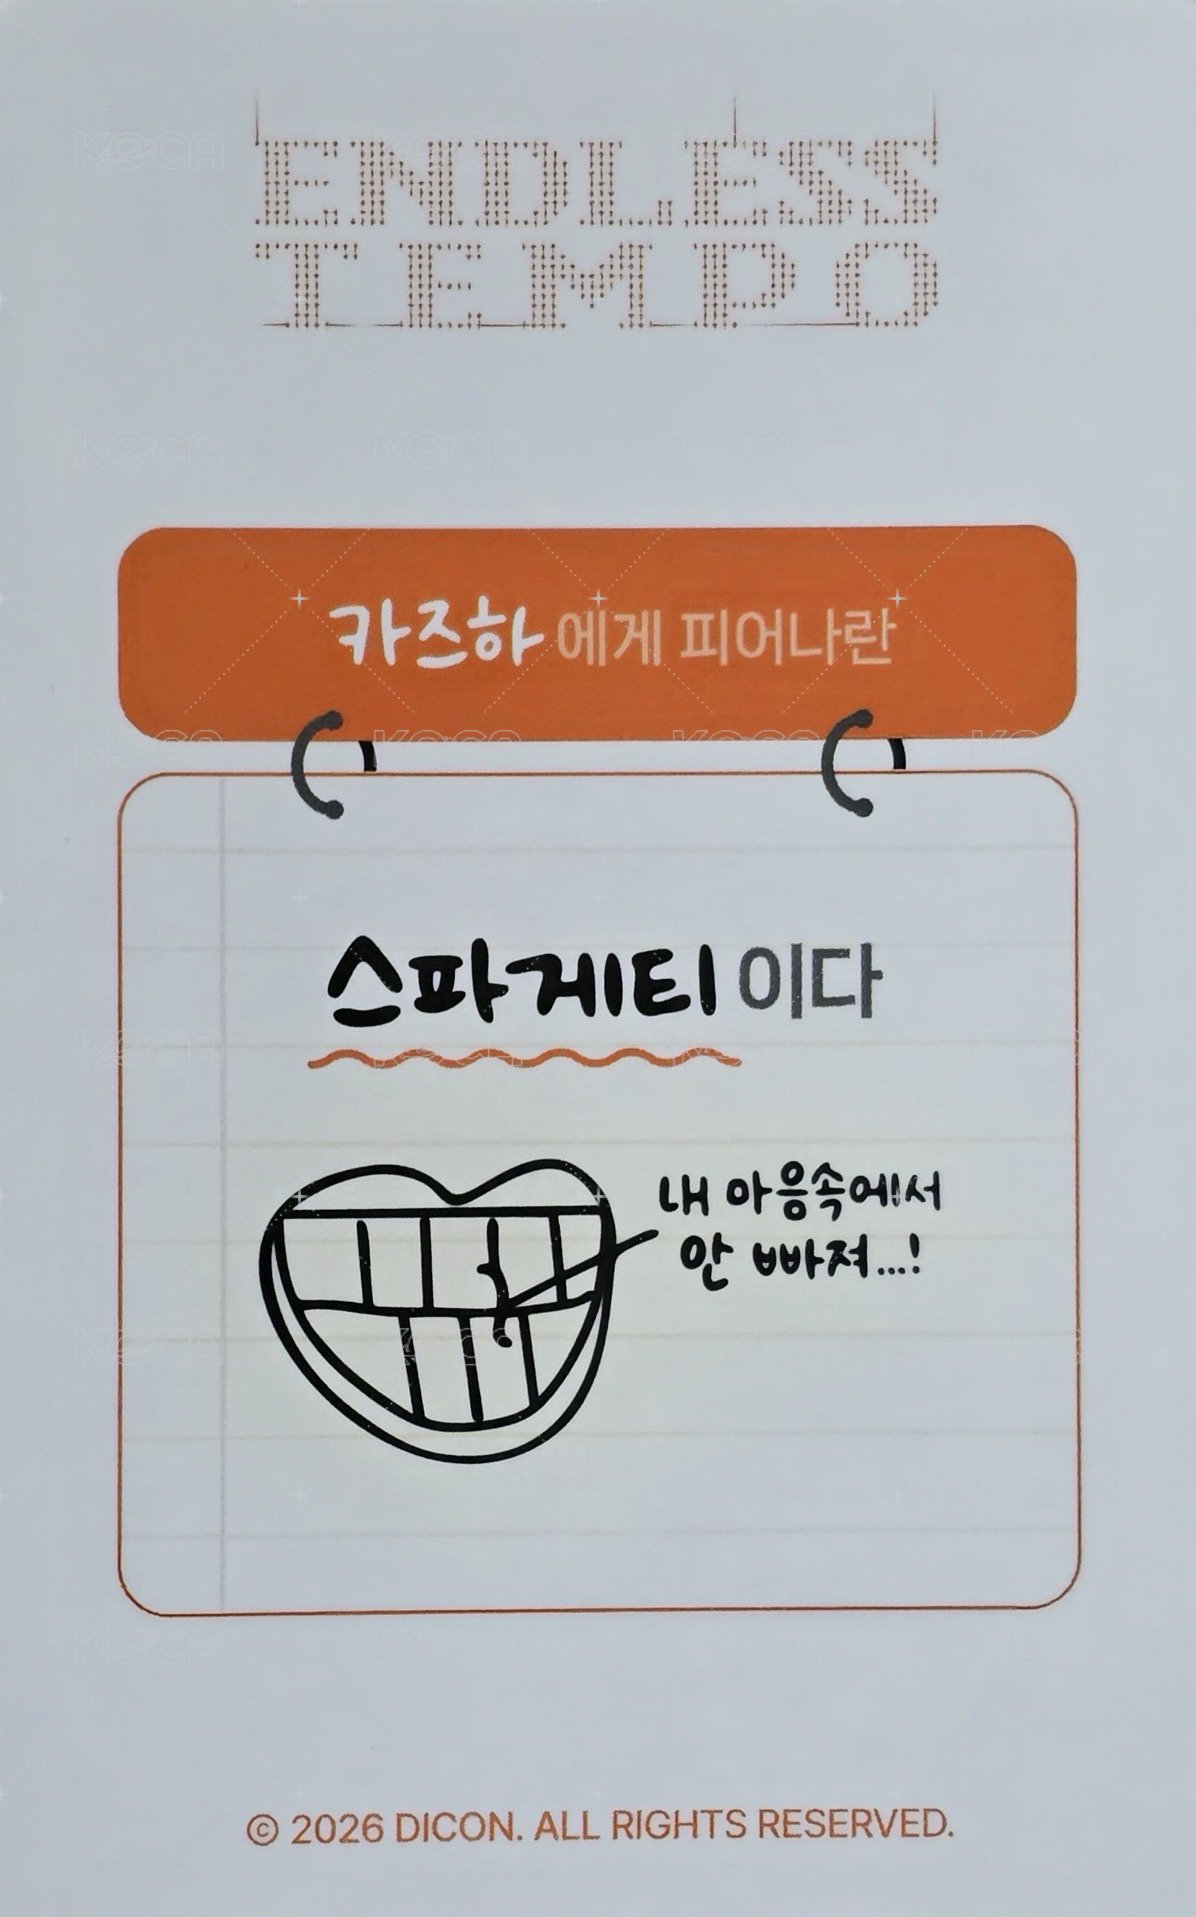 ENDLESS
TEMPO
카즈하에게 피어나란
스파게티이다
내 마음속에서
안 빠져...!
© 2026 DICON. ALL RIGHTS RESERVED.
KOCA